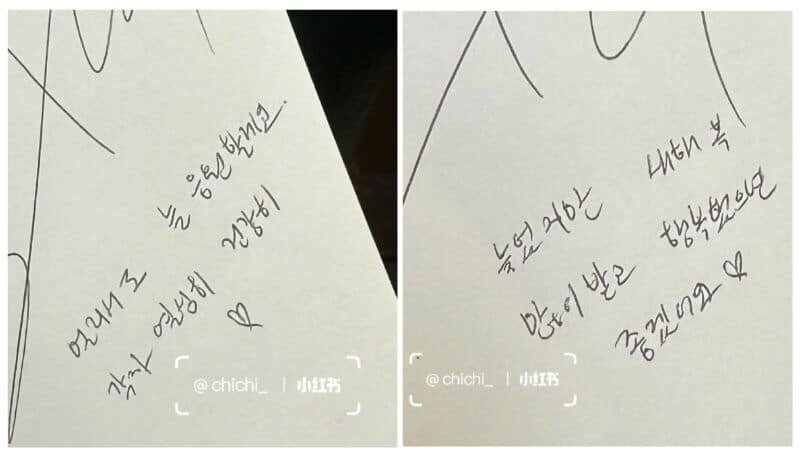 멀리서도 늘 응원할게요.
각자 열심히 건강히
♡
@chichi_ | 小红书
늦었지만 새해 복
많이 받고 행복했으면
좋겠어요 ♡
@chichi_ | 小红书